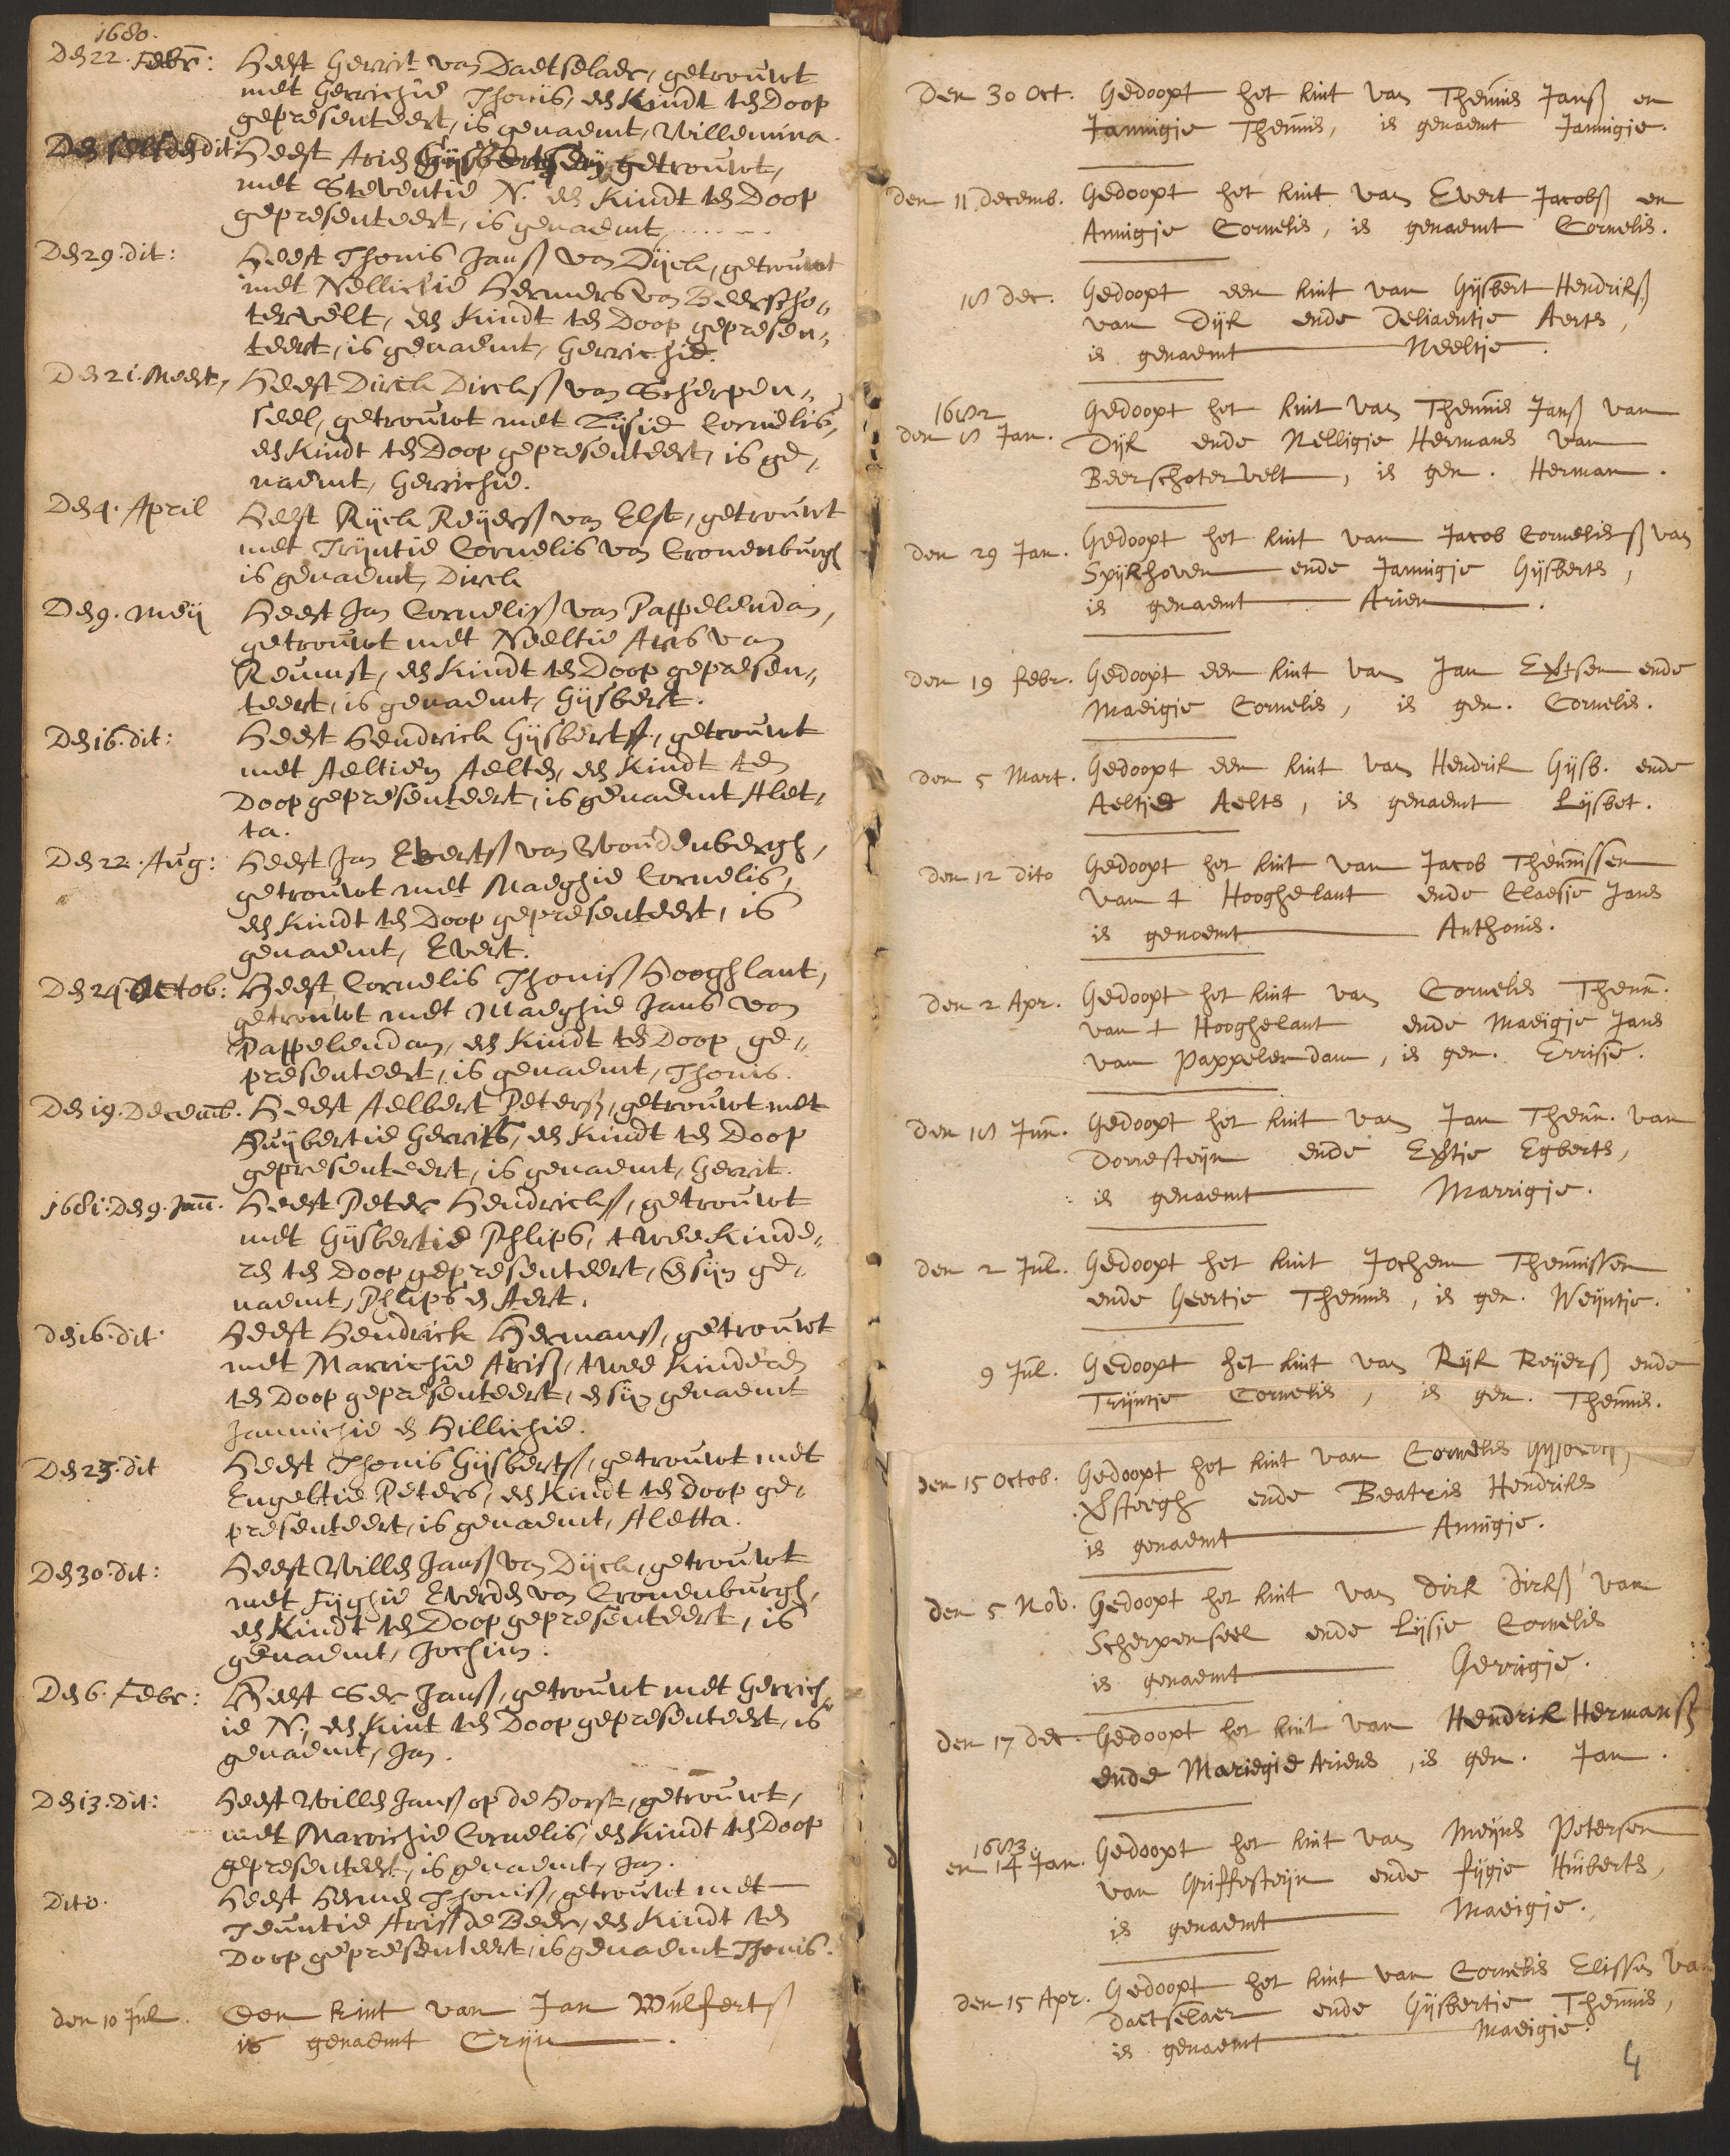 1680.
Den 22. Febr: Heeft Gerrit van Daetselaer, getrouwt
met Gerrichie Thonis, een Kindt ten Doop
gepresenteert, is genaemt, Willemina.
Den selfden dit: Heeft Arien Gijsbertsen getrouwt,
met Steventie N. een Kindt ten Doop
gepresenteert, is genaemt, . . . . . . .
Den 29. dit: Heeft Thonis Janß van Dijck, getrouwt
met Nellichie Hermens van Beerscho„
tervelt, een Kindt ten Doop gepresen„
teert, is genaemt, Gerrichie.
Den 21. Meert, Heeft Dirck Dircksß van Scherpen„
seel, getrouwt met Lijsie Cornelis,
een Kindt ten Doop gepresenteert, is ge„
naemt, Gerrichie.
Den 4. April Heeft Rijck Reijersß van Elst, getrouwt
met Trijntie Cornelis van Cronenburgh
is genaemt, Dirck
Den 9. Meij Heeft Jan Cornelisß van Pappelendam,
getrouwt met Neeltie Aris van
Reumst, een Kindt ten Doop gepresen„
teert, is genaemt, Gijsbert.
Den 16. dit: Heeft Hendrick Gijsbertß, getrouwt
met Aeltien Aelten, een Kindt ten
Doop gepresenteert, is genaemt Alet„
ta.
Den 22. Aug: Heeft Jan Evertsß van Woudenbergh,
getrouwt met Maeghie Cornelis,
een Kindt ten Doop gepresenteert, is
genaemt, Evert.
Den 24. Octob: Heeft Cornelis Thonisß Hooghlant,
getrouwt met Maeghie Jans van
Pappelendam, een Kindt ten Doop ge„
presenteert, is genaemt, Thonis.
Den 19. Decemb. Heeft Aelbert Petersß, getrouwt met
Huijbertie Gerrits, een Kindt ten Doop
gepresenteert, is genaemt, Gerrit.
1681: Den 9. Jan. Heeft Peter Hendricksß, getrouwt
met Gijsbertie Phlips, twee Kinde„
ren ten Doop gepresenteert, en sijn ge„
naemt, Phlips en Aert.
Den 16. dit. Heeft Hendrick Hermansß, getrouwt
met Marrichie Arisß, twee Kinderen
ten Doop gepresenteert, en sijn genaemt
Jannichie en Hillichie.
Den 23. dit Heeft Thonis Gijsbertß, getrouwt met
Engeltie Peters, een Kindt ten Doop ge„
presenteert, is genaemt, Aletta.
Den 30. dit: Heeft Willem Janß van Dijck, getrouwt
met Fijghie Everden van Cronenburgh,
een Kindt ten Doop gepresenteert, is
genaemt, Jochim.
Den 6. Febr: Heeft Janß, getrouwt met Gerrich„
ie N., een Kint ten Doop gepresenteert, is
genaemt, Jan.
Den 13. Dit: Heeft Willem Janß op de Horst, getrouwt,
met Marrichie Cornelis, een Kindt ten Doop
gepresenteert, is genaemt, Jan.
Dito. Heeft Hermen Thonisß, getrouwt met
Teuntie Arisß de Beer, een Kindt ten
Doop gepresenteert, is genaemt Thonis.
den 10 Jul. Een kint van Jan Wulfertß
is genaemt Crijn.
Den 30 Oct. Gedoopt het kint van Theunis Janß en
Jannigje Theunis, is genaemt Jannigje.
den 11 Decemb. Gedoopt het kint van Evert Jacobß en
Annigje Cornelis, is genaemt Cornelis.
18 Dec. Gedoopt een kint van Gijsbert Hendriksß
van Dijk ende Deliaentje Aerts,
is genaemt Neeltje.
1682
den 8 Jan. Gedoopt het kint van Theunis Janß van
Dijk ende Nelligje Hermans van
Beerschotervelt, is gen. Herman.
den 29 Jan. Gedoopt het kint van Jacob Cornelisß van
Spijkhoven ende Jannigje Gijsberts,
is genaemt Arien.
den 19 Febr. Gedoopt een kint van Jan Evertsen ende
Madigje Cornelis, is gen. Cornelis.
den 5 Mart. Gedoopt een kint van Hendrik Gijsb. ende
Aeltje Aelts, is genaemt Lijsbet.
den 12 dito Gedoopt het kint van Jacob Theunissen
van t Hooghelant ende Claesje Jans
is genoemt Anthonis.
den 2 Apr. Gedoopt het kint van Cornelis Theun.
van t Hooghelant ende Maeigje Jans
van Pappelendam, is gen. Errisje.
den 18 Jun. Gedoopt het kint van Jan Theun. van
Dorresteijn ende Evertje Egberts,
is genaemt Marrigje.
den 2 Jul. Gedoopt het kint Jochem Theunissen
ende Geertje Theunis, is gen. Weijntje.
9 Jul. Gedoopt het kint van Rijk Reijersß ende
Trijntje Cornelis, is gen. Theunis.
den 15 Octob. Gedoopt het kint van Cornelis Gijsbertß
ende Beatris Hendriks
is genaemt Annigje.
den 5 Nov. Gedoopt het kint van Dirk Dirksß van
Scherpenseel ende Lijsje Cornelis
is genaemt Gerrigje.
den 17 Dec. Gedoopt het kint van Hendrik Hermansß
ende Mariegie Ariens, is gen. Jan.
1683
en 14 Jan. Gedoopt het kint van Meijns Petersen
van Griffesteijn ende Fijgje Huiberts,
is genaemt Madigje.
den 15 Apr. Gedoopt het kint van Cornelis Elissen va
Daetselaer ende Gijsbertje Theunis,
is genaemt Madigje.
4